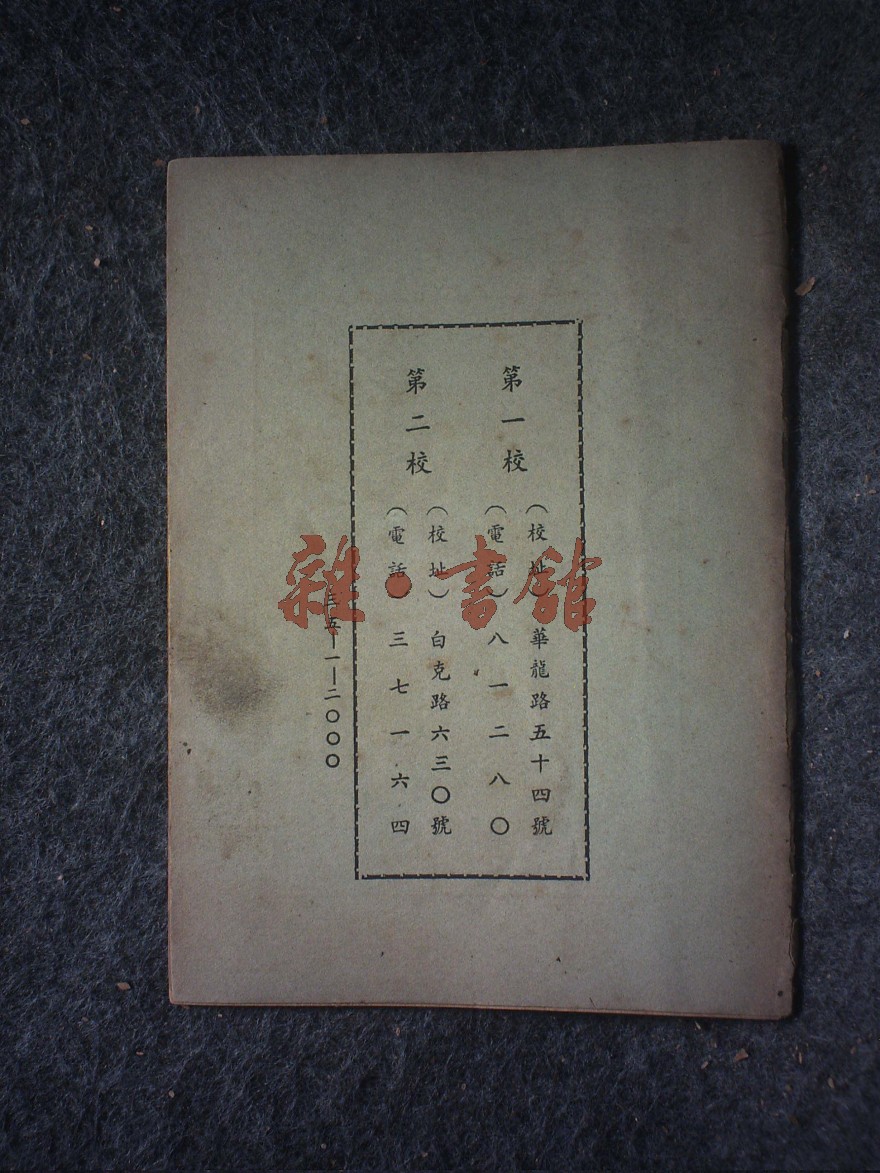 第一校
（校址）華龍路五十四號
（電話）八一二八〇
第二校
（校址）白克路六三〇號
（電話）三七一六四
三五—一—二〇〇〇
雜·書館